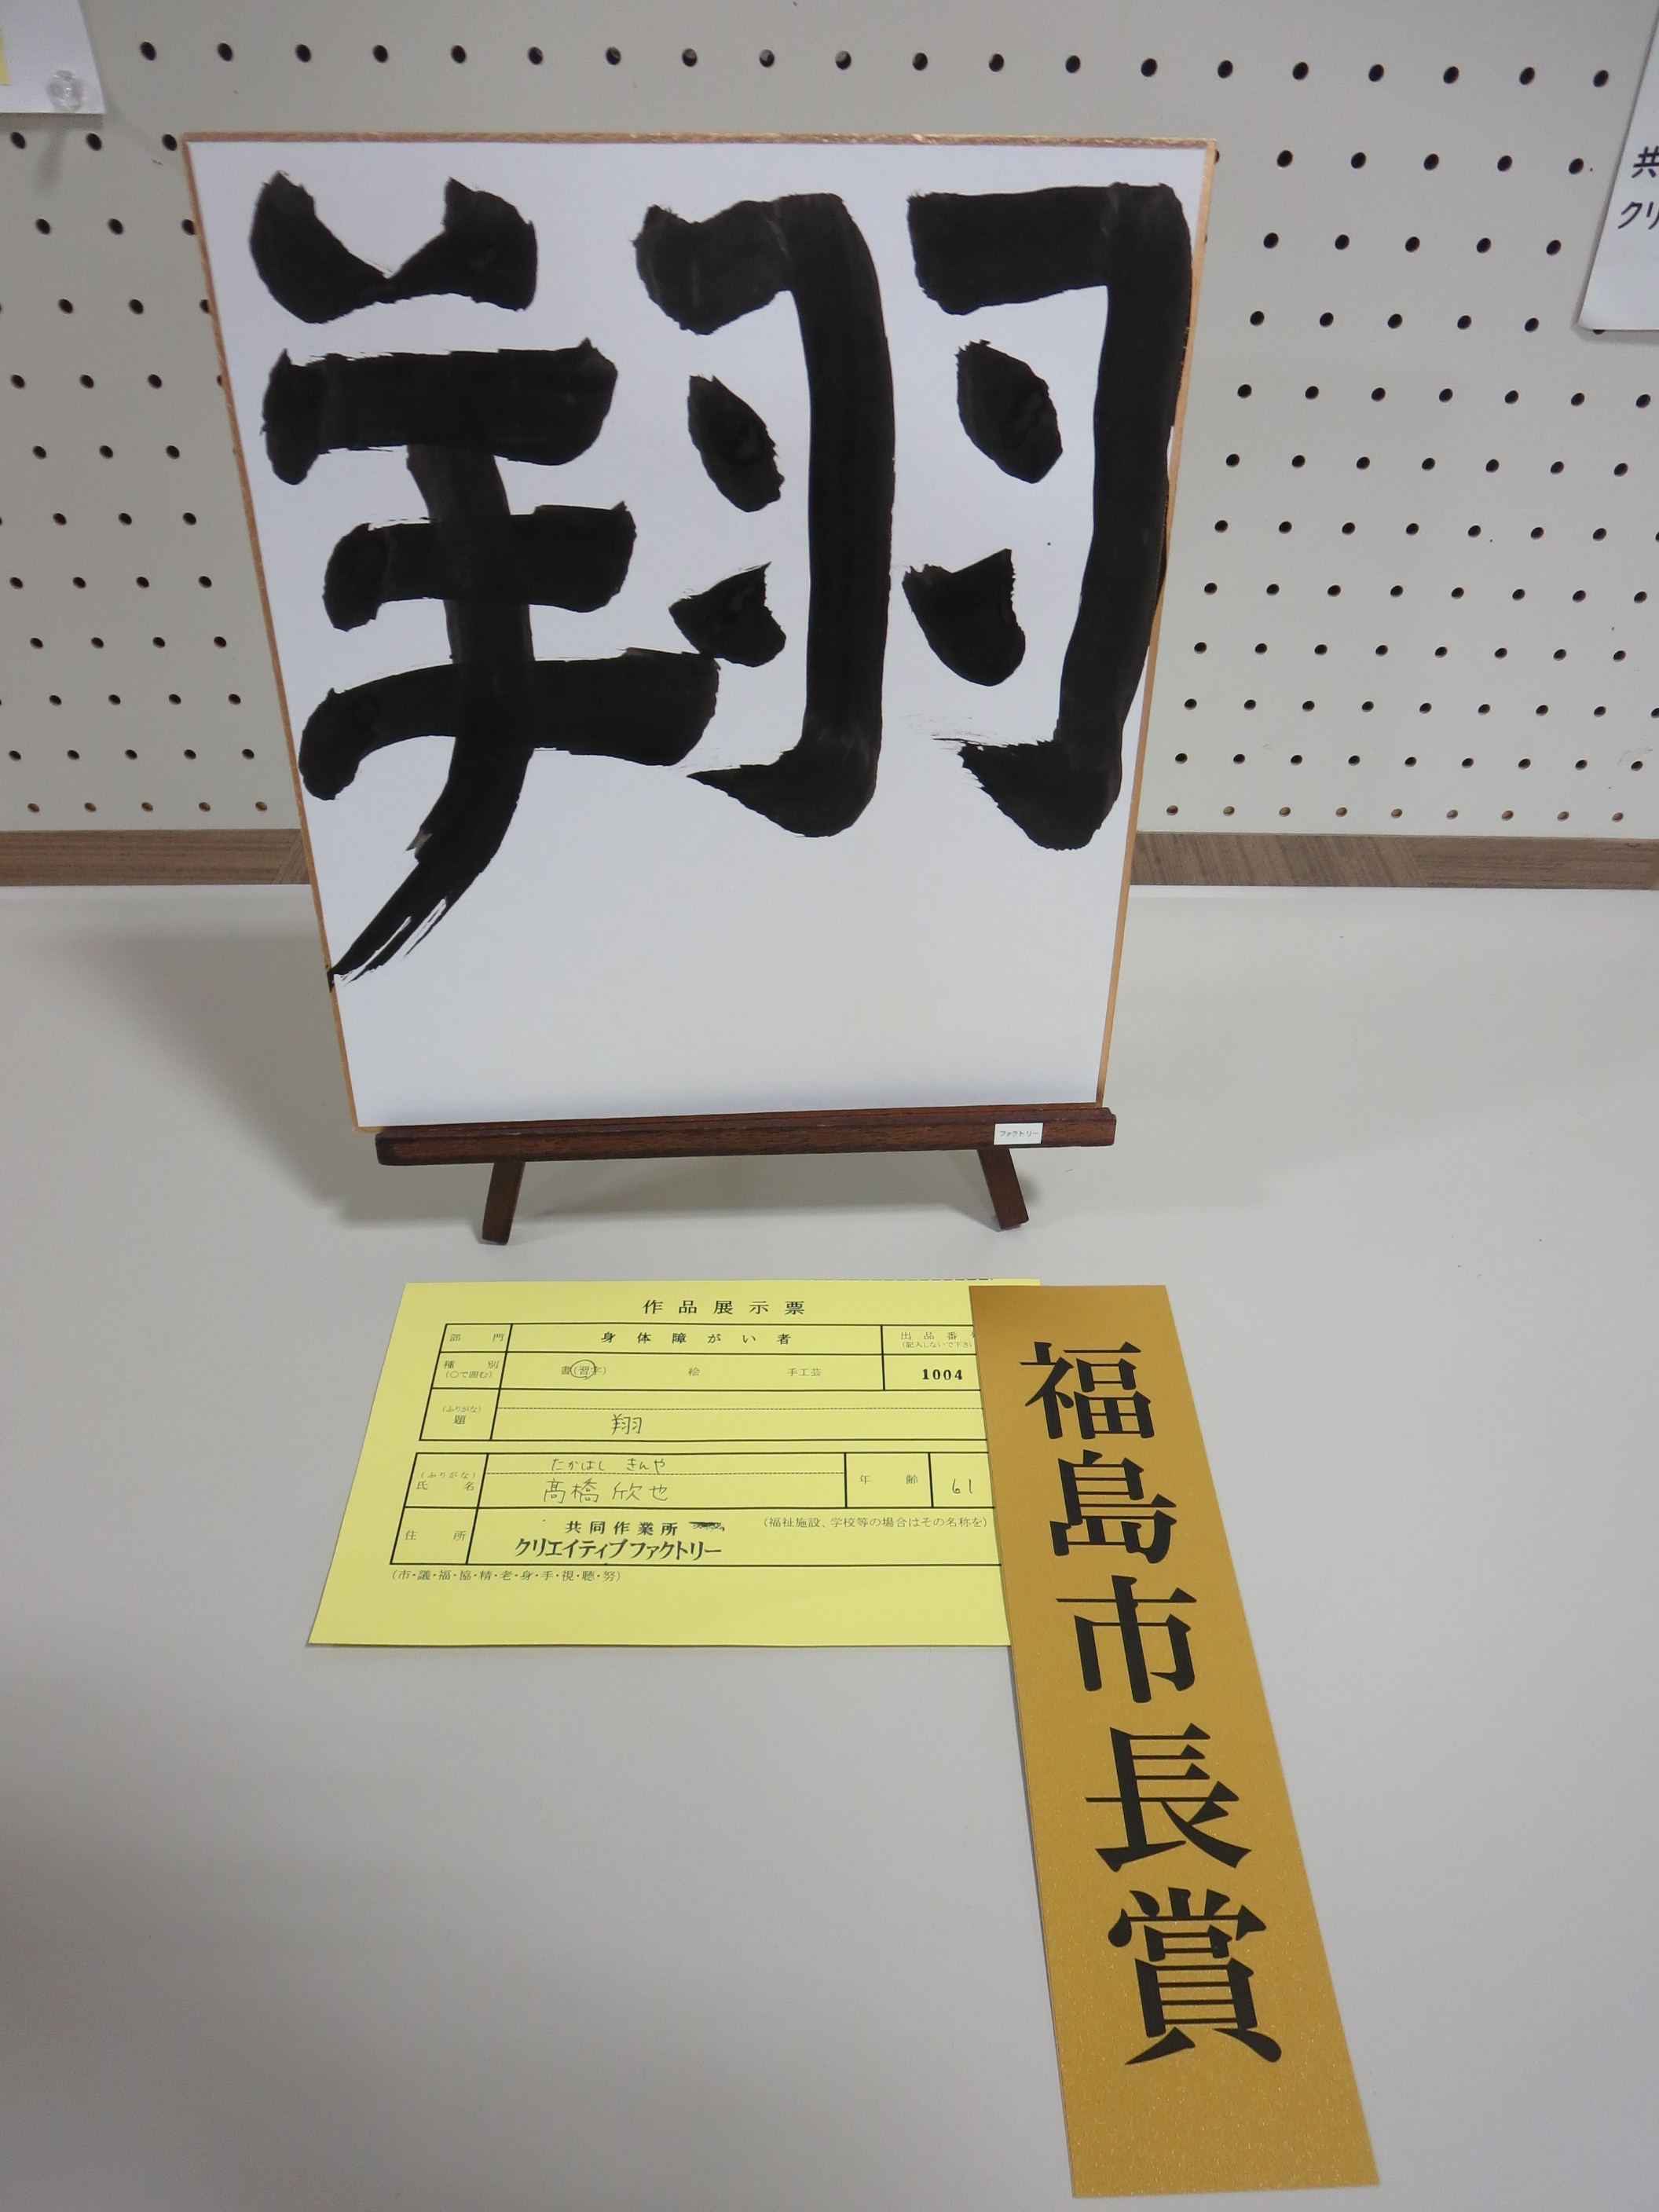 翔
共
クリ
ファクトリー
作品展示票
部門 身体障がい者 出品番
(記入しないで下さい
種別 書(習字) 絵 手工芸 1004
(○で囲む)
(ふりがな)
題 翔
(ふりがな) たかはし きんや
氏名 髙橋 欣也 年齢 61
住所 共同作業所 (福祉施設、学校等の場合はその名称を)
クリエイティブファクトリー
(市・議・福・協・精・老・身・手・視・聴・努)
福島市長賞